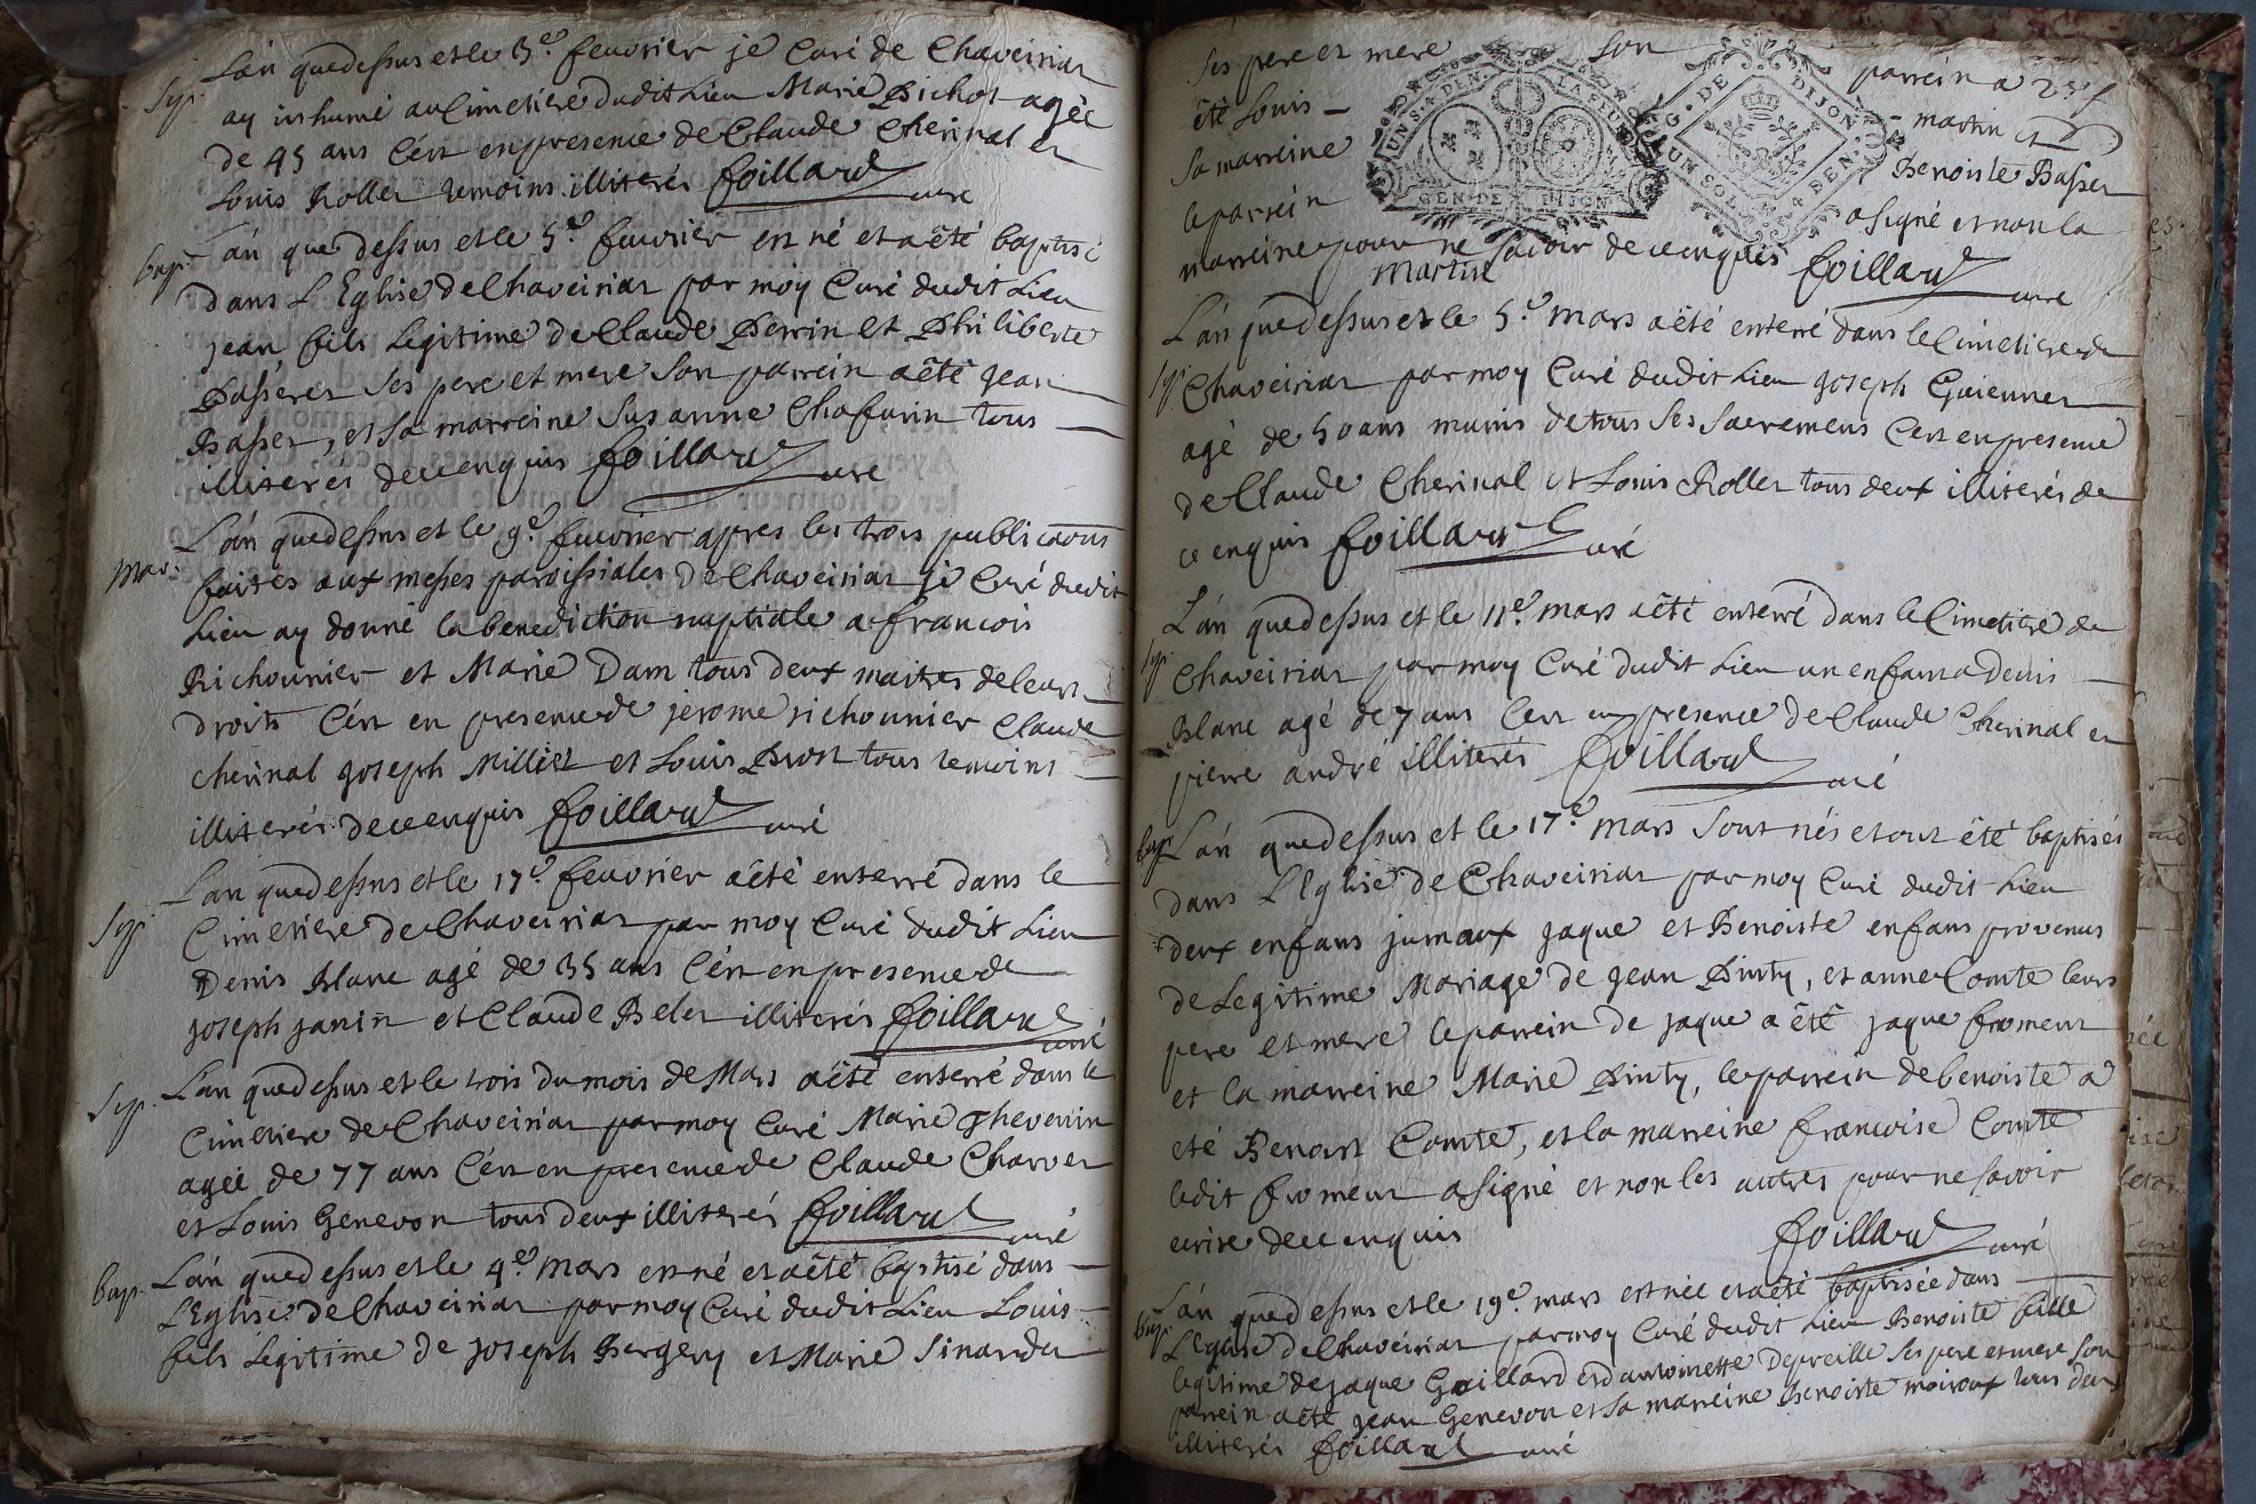 L'an que dessus et le 3e. feuvrier je Curé de Chaveiriat
Sep.
ay inhumé au Cimetiere dudit Lieu Marie Pichot agée
de 45 ans C'est en presence de Claude Cherinal et
Louis Rollet temoins illiterés foillard curé
bap. L'an que dessus et le 5e. feuvrier est né et a êté baptisé
dans L'Eglise de Chaveiriat par moy Curé dudit Lieu
jean fils Legitime de Claude Perrin et Philiberte
Passeret ses pere et mere Son parrein a êté jean
Basset, et sa marreine Susanne Chafurin tous
illiterés de ce enquis foillard curé
L'an que dessus et le 9e. feuvrier apres les trois publicaons
Mar. faites aux messes paroissiales de Chaveiriat je Curé dudit
Lieu ay donné la benediction nuptiale a francois
Richonnier et Marie Dam tous deux maitres de leurs
droits C'est en presence de jerome richonnier Claude
cherinal joseph Milliet et Louis Pion tous temoins
illiterés de ce enquis foillard curé
L'an que dessus et le 17e. feuvrier a êté enterré dans le
Sep. Cimetiere de Chaveiriat par moy Curé dudit Lieu
Denis Blanc agé de 35 ans C'est en presence de
joseph janin et Claude Belet illiterés foillard curé
Sep. L'an que dessus et le trois du mois de Mars a êté enterré dans le
Cimetiere de Chaveiriat par moy Curé Marie Thevenin
agée de 77 ans C'est en presence de Claude Charvet
et Louis Genevon tous deux illiterés foillard curé
bap. L'an que dessus et le 4e. mars est né et a êté baptisé dans
L'Eglise de Chaveiriat par moy Curé dudit Lieu Louis
fils Legitime de joseph Bergery et Marie Sinardet
ses pere et mere Son parrein a
êté Louis martin et
sa marreine Benoiste Basset
le parrein a signé et non la
marreine pour ne savoir de ce enquis foillard curé
martin
UN S. 4 DEN. LA FEU
GEN. DE DIJON
G. DE DIJON
UN SOL. 4 DEN.
L'an que dessus et le 5e. mars a êté enterré dans le Cimetiere de
sep. Chaveiriat par moy Curé dudit Lieu joseph Guiennet
agé de 50 ans munis de tous ses sacremens C'est en presence
de Claude Cherinal et Louis Rollet tous deux illiterés de
ce enquis foillard curé
L'an que dessus et le 11e. mars a êté enterré dans le Cimetiere de
sep. Chaveiriat par moy Curé dudit Lieu un enfant a Denis
Blanc agé de 7 ans C'est en presence de Claude Cherinal et
pierre andré illiterés foillard curé
bap. L'an que dessus et le 17e. mars Sont nés et ont êté baptisés
dans L'Eglise de Chaveiriat par moy Curé dudit Lieu
deux enfans jumaux jaque et Benoiste enfans provenus
de Legitime Mariage de jean Pinty, et anne Comte leurs
pere et mere le parrein de jaque a êté jaque froment
et la marreine Marie Pinty, le parrein de benoiste a
eté Benoist Comte, et la marreine francoise Comte
ledit froment a signé et non les autres pour ne savoir
ecrire de ce enquis foillard curé
bap. L'an que dessus et le 19e. mars est née et a êté baptisée dans
L'Eglise de Chaveiriat par moy Curé dudit Lieu Benoiste fille
legitime de jaque Gaillard et d'antoinette Depreille ses pere et mere son
parrein a êté jean Genevon et sa marreine Benoiste moiroux tous deux
illiterés foillard curé